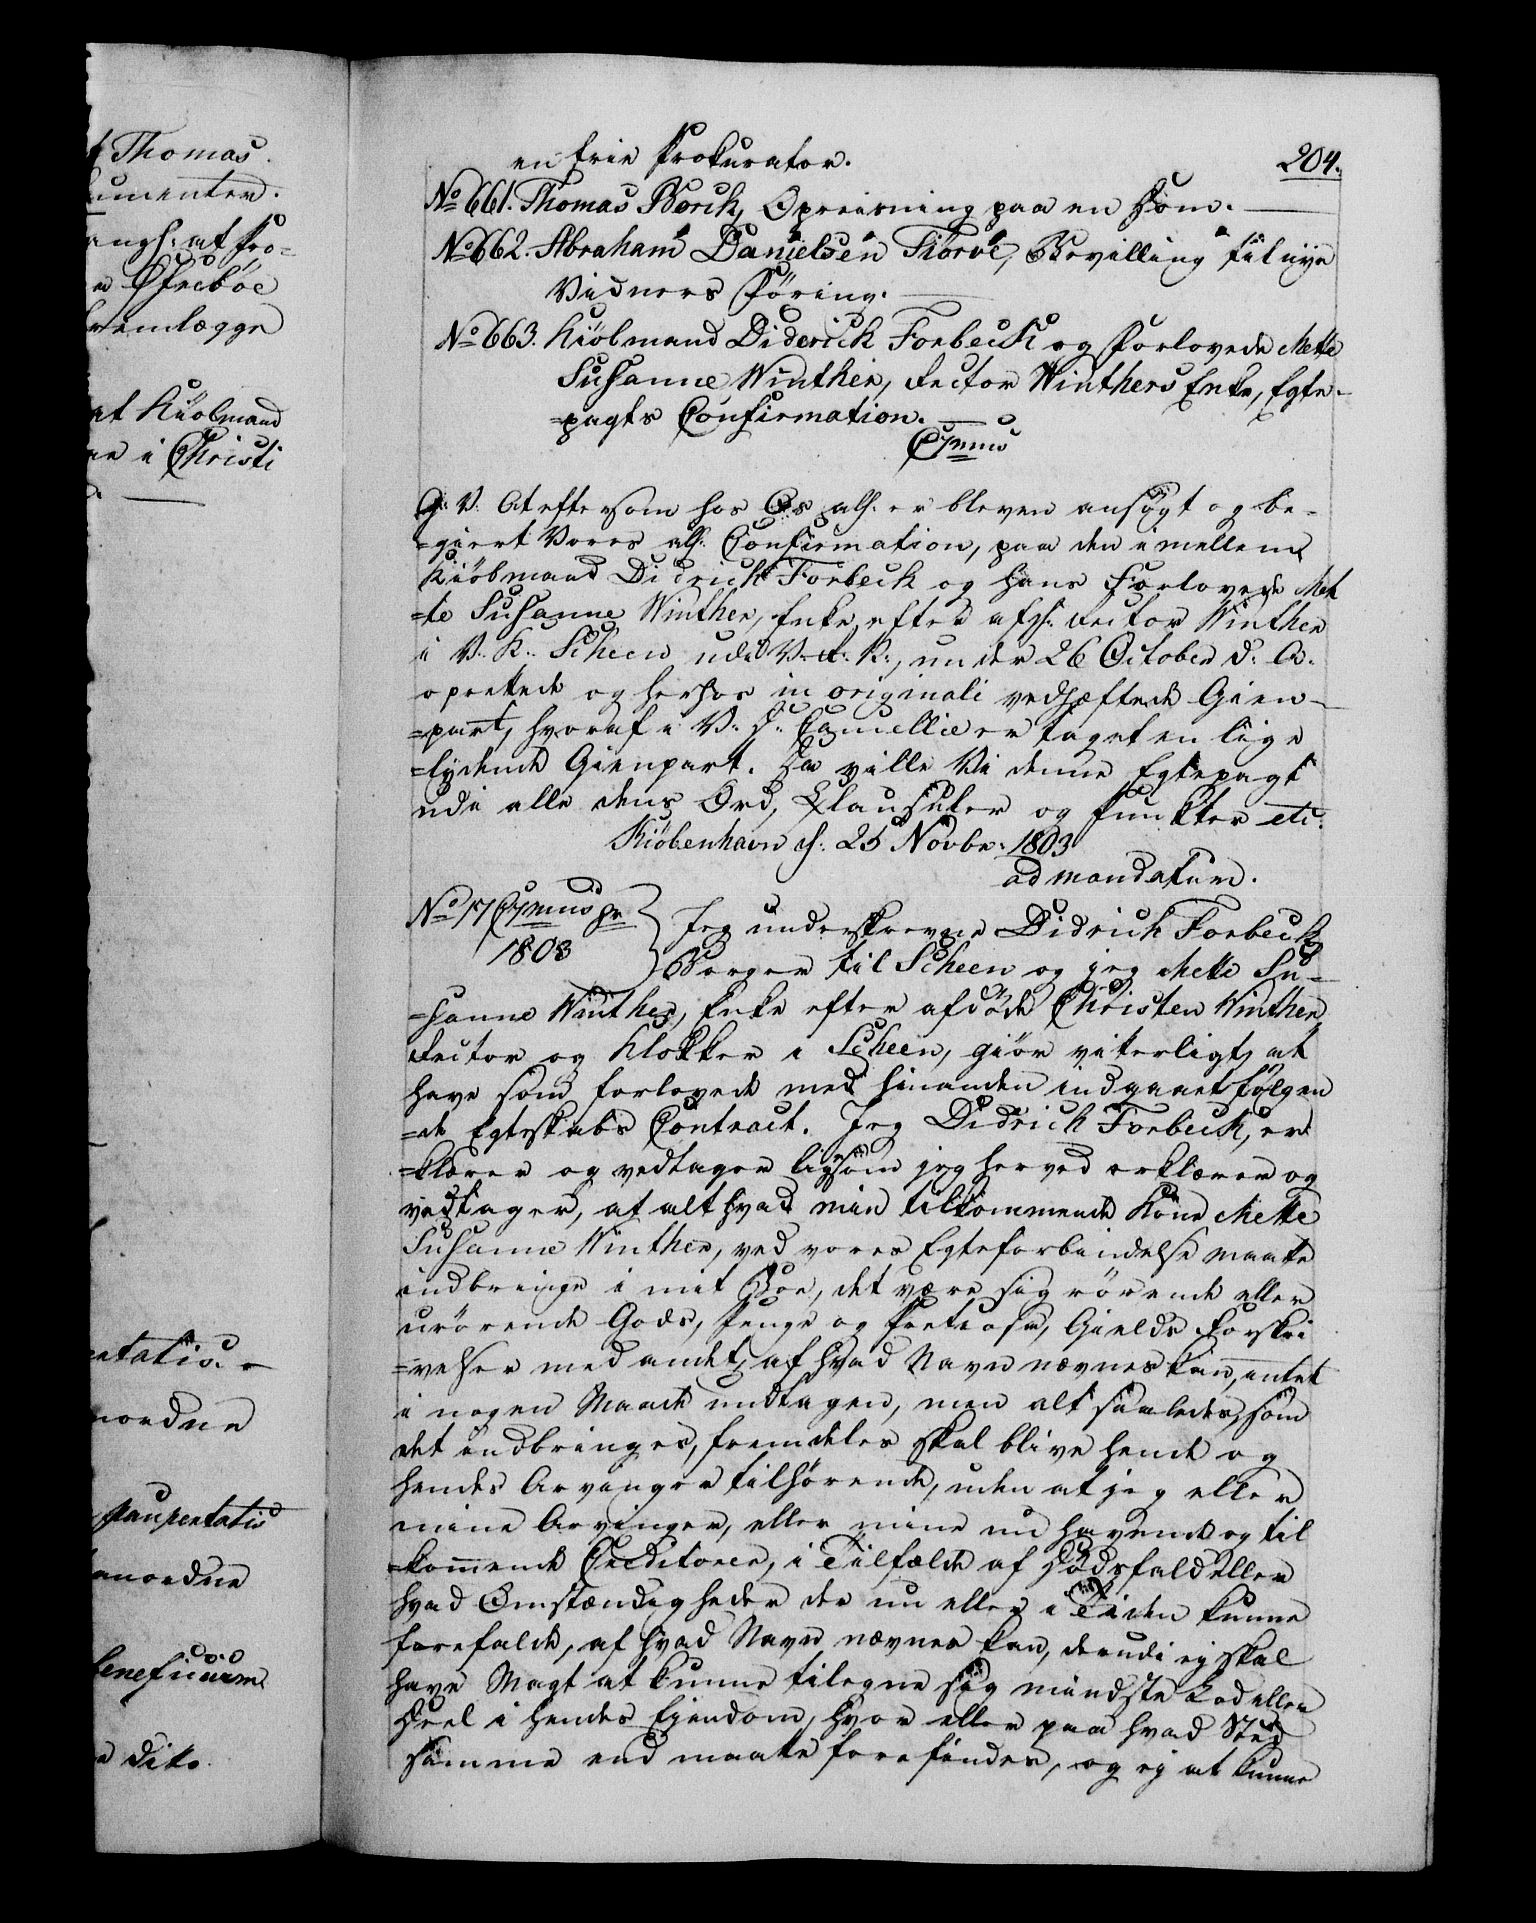 t Thomas
umenter.
angh: at Pro-
n Ofreböe
fremlægge
at Kiöbmand
ne i Christi
ntatis. -
nordne
paupertatis
anordne
beneficium
n dito.
en frie Prokurator.
204.
No 661. Thomas Borch, Opreisning paa en Dom.
No 662. Abraham Danielsen Tiörve, Bevilling til nye
Vidners Föring.
No 663. Kiöbmand Diderich Forbeck og Forlovede Mette
Susanne Winther, Rector Winthers Enke, Egte-
=pagts Confirmation.
C7mus
G: V: At eftersom hos Os allh. er bleven ansøgt og be-
=giert Vores allh: Confirmation, paa den imellem
Kiöbmand Didrich Forbeck og hans Forlovede Met
=te Susanne Winther, Enke efter afgh: Rector Winther
i V: K: Scheen udi V: R: N:, under 26 October d: A:
oprettede og herhos in originali vedhæftede Gien-
=part, hvoraf i V: D: Cancellie er taget en lige
=lydende Gienpart. Da ville Vi denne Egtepagt
udi alle dens Ord, Clausuler og Punkter etc:
Kiöbenhavn d: 25 Novbr. 1803
ad mandatum.
No 17 C7mus pr
1803
Jeg underskrevne Didrich Forbeck
Borger til Scheen og jeg Mette Su-
=sanne Winther, Enke efter afdöde Christen Winther
Rector og Klokker i Scheen, giör vitterligt, at
have som forlovede med hinanden indgaaet følgen
=de Egteskabs Contract. Jeg Didrich Forbeck, er
=klærer og vedtager ligesom jeg herved erklærer og
vedtager, at alt hvad min tilkommende Kone Mette
Susanne Winther, ved vores Egteforbindelse maatte
indbringe i mit Boe, det være sig rörende eller
urörende Gods, Penge og Pretiosa, Gields Forskri
=velser med andet, af hvad Navn nævnes kan, intet
i nogen Maade undtagen, men alt saaledes, som
det indbringes, fremdeles skal blive hende og
hendes Arvinger tilhørende, uden at jeg eller
mine Arvinger, eller mine nu havende og til
=kommende Creditorer, i Tilfælde af Dödsfald eller
hvad Omstændigheder der nu eller i Tiden kunne
forefalde, af hvad Navn nævnes kan, derudi ej skal
have Magt at kunne tilegne sig mindste Lod eller
Deel i hendes Ejendom, hvor eller paa hvad Sted
samme end maatte forefindes, og ej at kunne